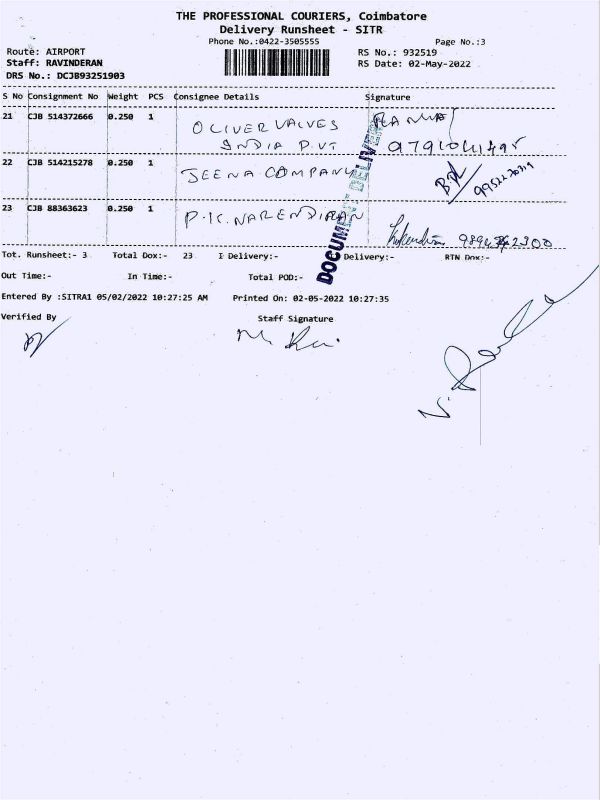 THE PROFESSIONAL COURIERS, Coimbatore
Delivery Runsheet - SITR
Phone No.:0422-3505555
Page No.:3
Route: AIRPORT
RS No.: 932519
Staff: RAVINDERAN
RS Date: 02-May-2022
DRS No.: DCJB93251903
S No Consignment No Weight PCS Consignee Details Signature
21 CJB 514372666 0.250 1 OLIVER VALVES
INDIA P.VT
22 CJB 514215278 0.250 1 JEENA COMPANY
23 CJB 88363623 0.250 1 P.K.NARENDIRAN
DOCUMENT DELIVER
Tot. Runsheet:- 3 Total Dox:- 23 I Delivery:- Delivery:- RTN Dox:-
Out Time:- In Time:- Total POD:-
Entered By :SITRA1 05/02/2022 10:27:25 AM Printed On: 02-05-2022 10:27:35
Verified By Staff Signature